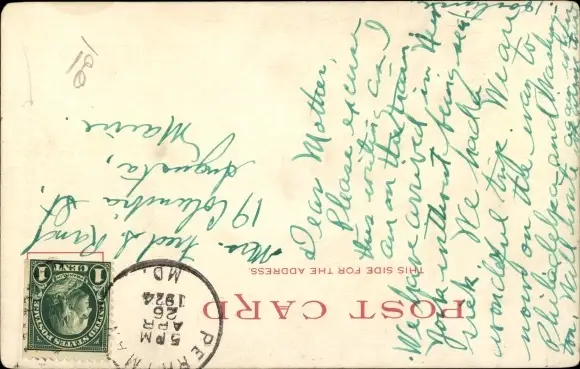 POST CARD
THIS SIDE FOR THE ADDRESS.
PERRYMAN
APR
26
5 PM
1924
MD.
UNITED STATES POSTAGE
1 CENT 1
Mrs. Fred S. Rand
19 Columbia St.
Augusta,
Maine.
190
Dear Mother,
Please excuse
this writing as I
am on the train.
We have arrived in New
York without being sea
sick. We had a
wonderful trip. We are
now on the way to
Philadelphia and Washing
ton. Will write again